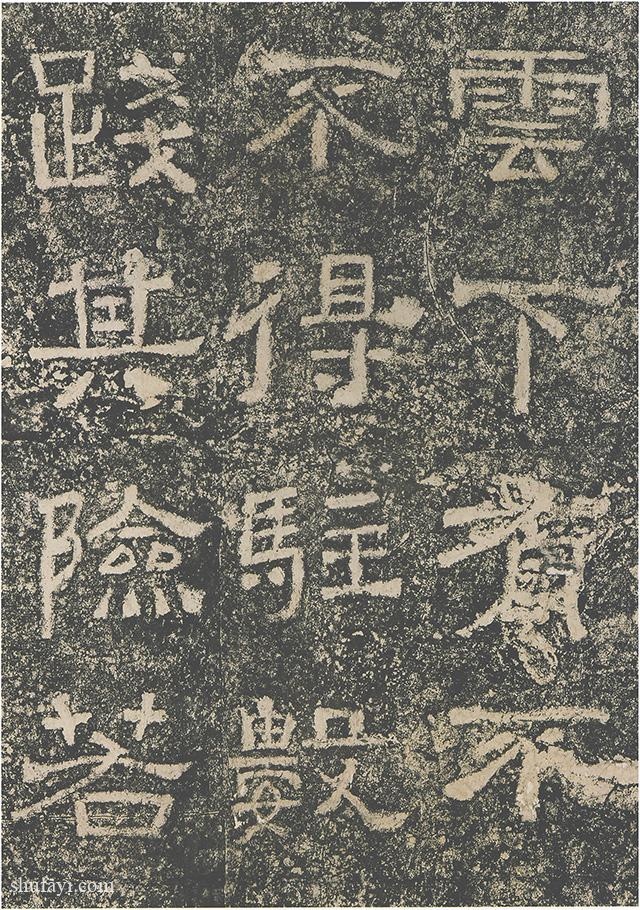 雲下有不
不得駐數
踐其險若
shufayi.com